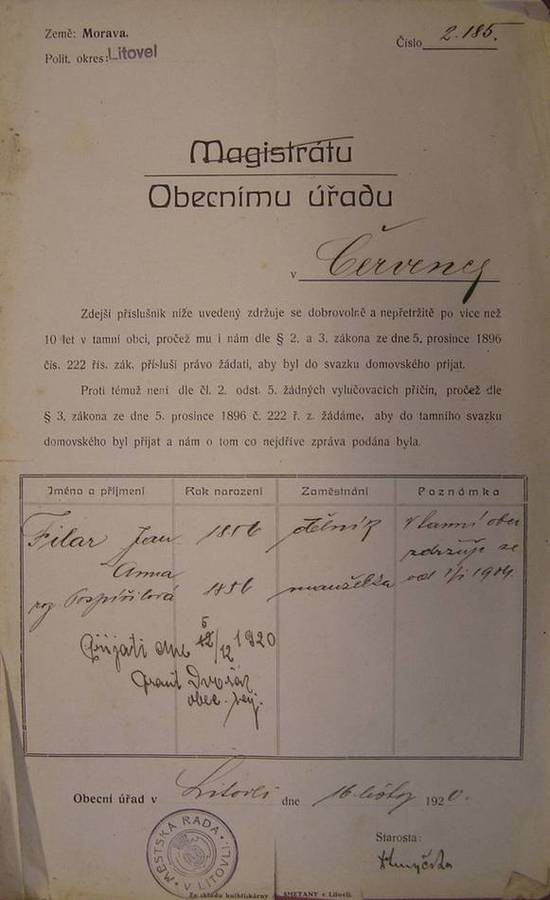 Země: Morava.
Číslo 2.185.
Polit. okres: Litovel
Magistrátu
Obecnímu úřadu
v Července
Zdejší příslušník níže uvedený zdržuje se dobrovolně a nepřetržitě po více než
10 let v tamní obci, pročež mu i nám dle § 2. a 3. zákona ze dne 5. prosince 1896
čís. 222 řís. zák. přísluší právo žádati, aby byl do svazku domovského přijat.
Proti témuž není dle čl. 2. odst. 5. žádných vylučovacích příčin, pročež dle
§ 3. zákona ze dne 5. prosince 1896 č. 222 ř. z. žádáme, aby do tamního svazku
domovského byl přijat a nám o tom co nejdříve zpráva podána byla.
Jméno a příjmení Rok narození Zaměstnání Poznámka
Filar Jan 1856 dělník V tamní obci
zdržuje se
Anna 1856 manželka od 1/I 1904.
roz. Pospíšilová
Přijati dne 5/12 1920
Frant Dvořák
obec.
Obecní úřad v Litovli dne 16 listop 1920.
MĚSTSKÁ RADA V LITOVLI
Starosta:
Ze skladu knihtiskárny J. SMETANY v Litovli.